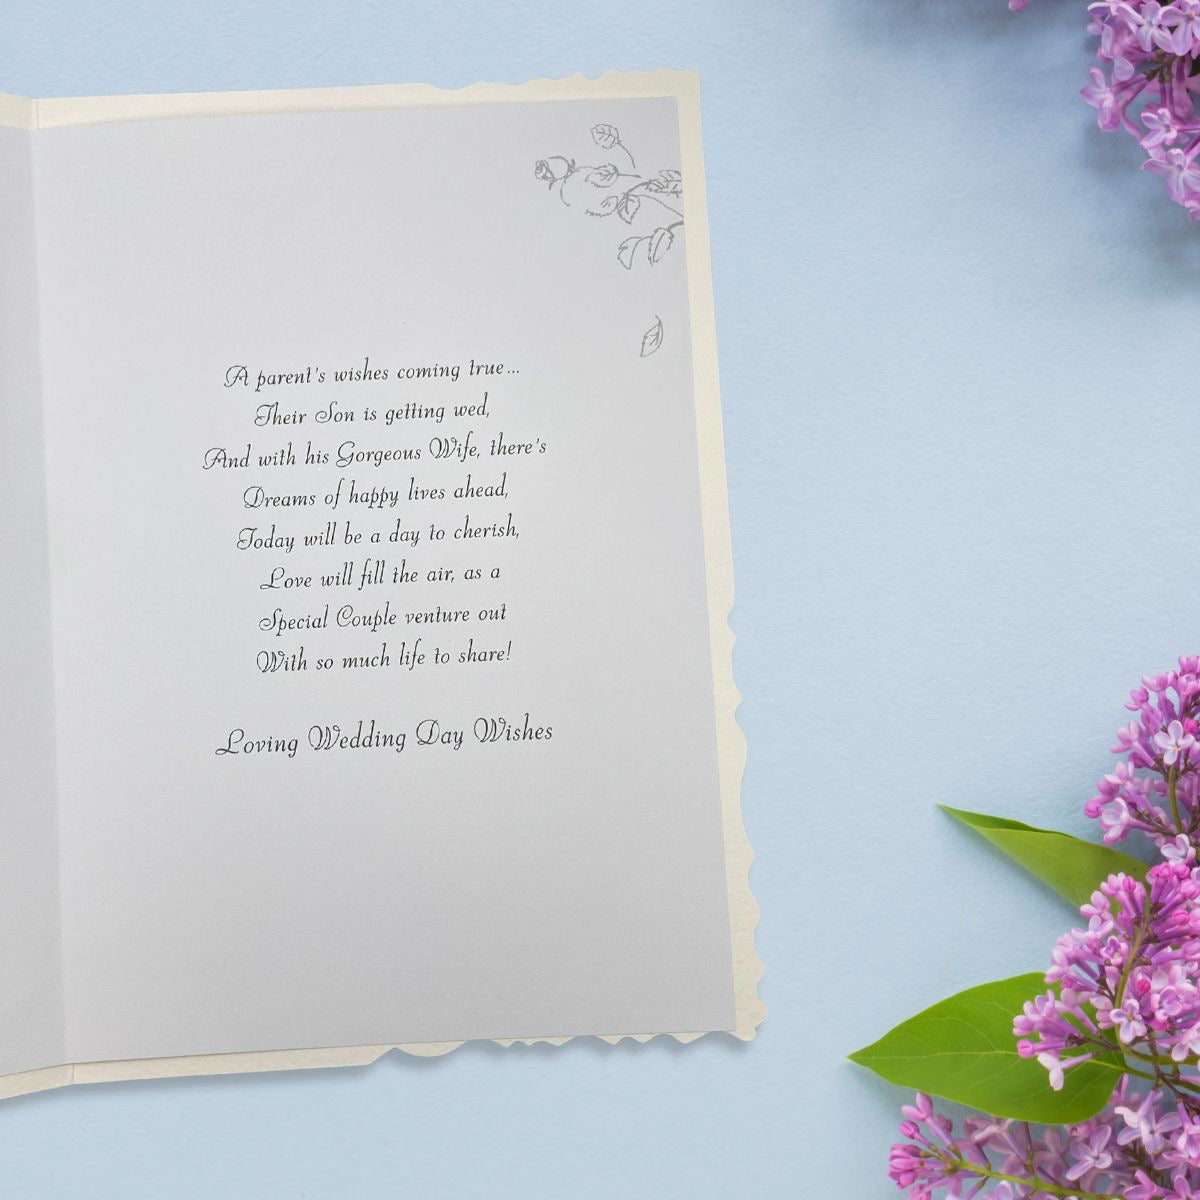 A parent's wishes coming true...
Their Son is getting wed,
And with his Gorgeous Wife, there's
Dreams of happy lives ahead,
Today will be a day to cherish,
Love will fill the air, as a
Special Couple venture out
With so much life to share!
Loving Wedding Day Wishes